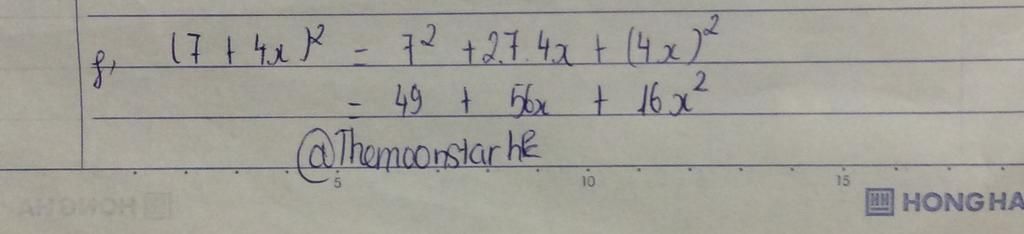 f, (7 + 4x)² = 7² + 2.7.4x + (4x)²
= 49 + 56x + 16x²
@Themoonstarhk
5 10 15
HONG HA